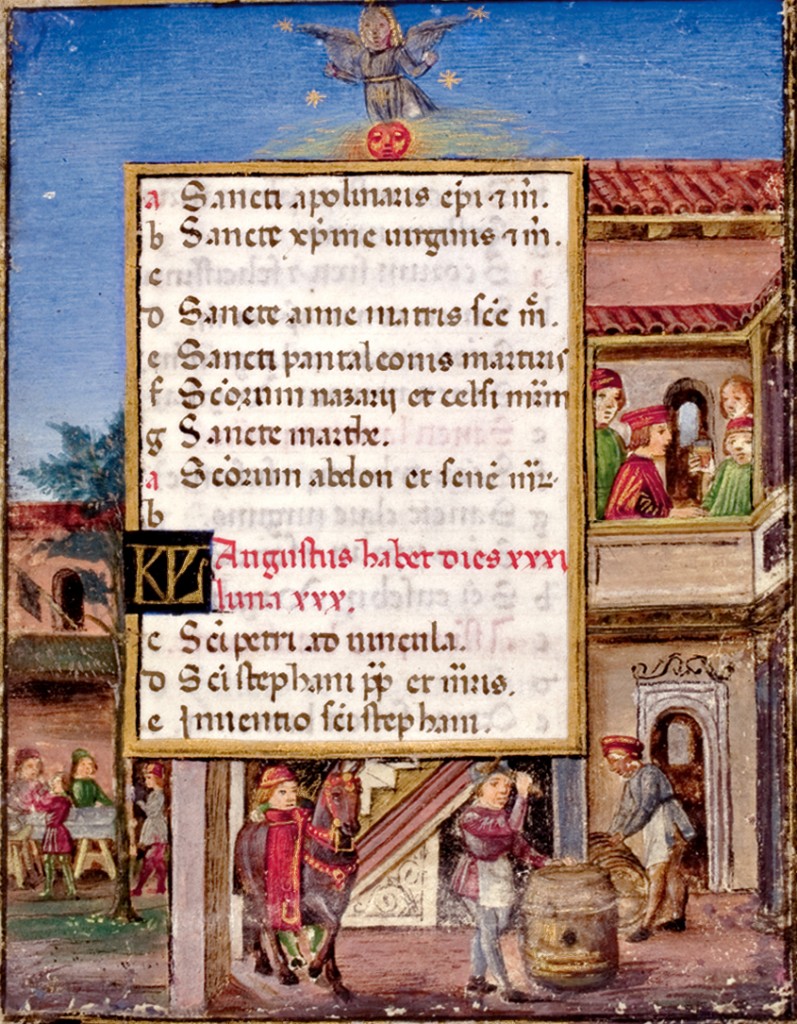 a Sancti apolinaris ep̄i ⁊ m̄.
b Sancte xp̄ine uirginis ⁊ m̄.
c
d Sancte anne matris sc̄e m̄.
e Sancti pantaleonis martiris
f Sc̄orum nazarij et celsi mr̄m
g Sancte marthe.
a Sc̄orum abdon et senē mr̄.
b
KL Augustus habet dies xxxi
luna xxx.
c Sc̄i petri ad uincula.
d Sc̄i stephani pp̄ et mr̄is.
e Inuentio sc̄i stephani.